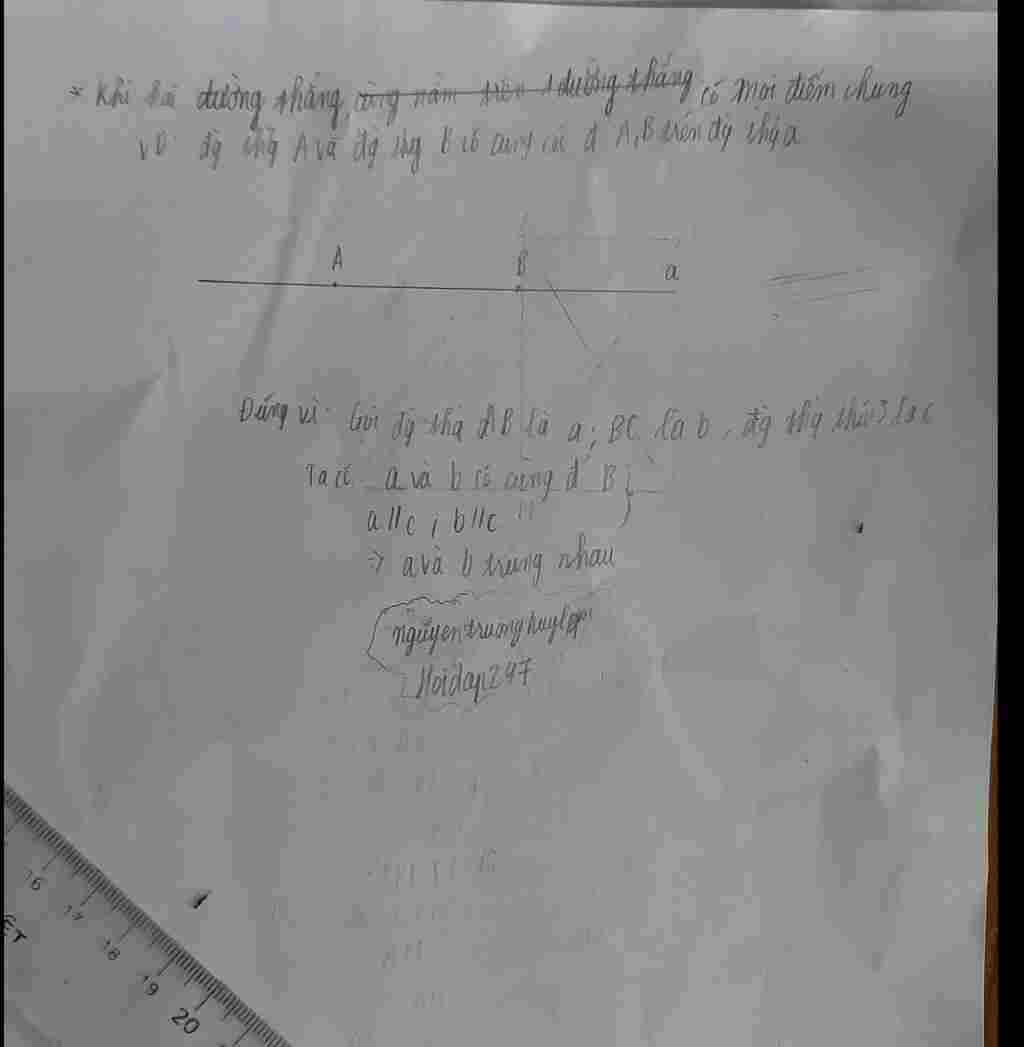 * Khi hai đường thẳng, cùng nằm trên 1 đường thẳng có mọi điểm chung
VD đg thg A và đg thg B có cùng các đ A, B trên đg thg a
A B a
Đúng vì: Gọi đg thg AB là a; BC là b, đg thg thứ 3 là c
Ta có a và b có cùng đ B
a//c ; b//c
=> a và b trùng nhau
nguyentruonghuy
Hoidap247
16 17 18 19 20
ET